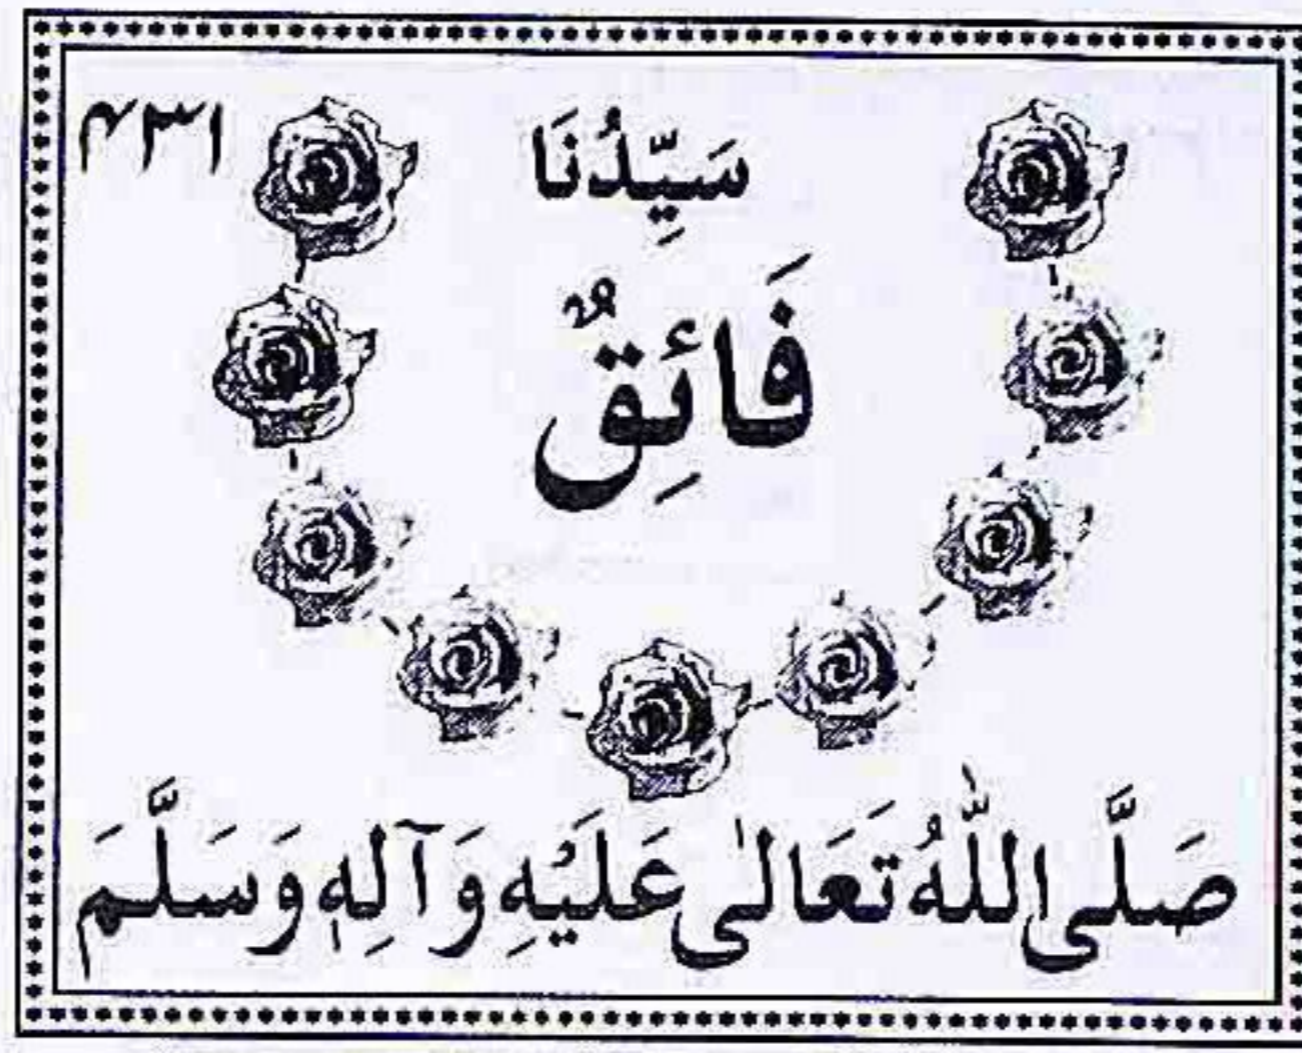 سَيِّدُنَا
۴۳۱
فَائِقٌ
صَلَّى اللّٰهُ تَعَالٰى عَلَيْهِ وَآلِهٖ وَسَلَّمَ